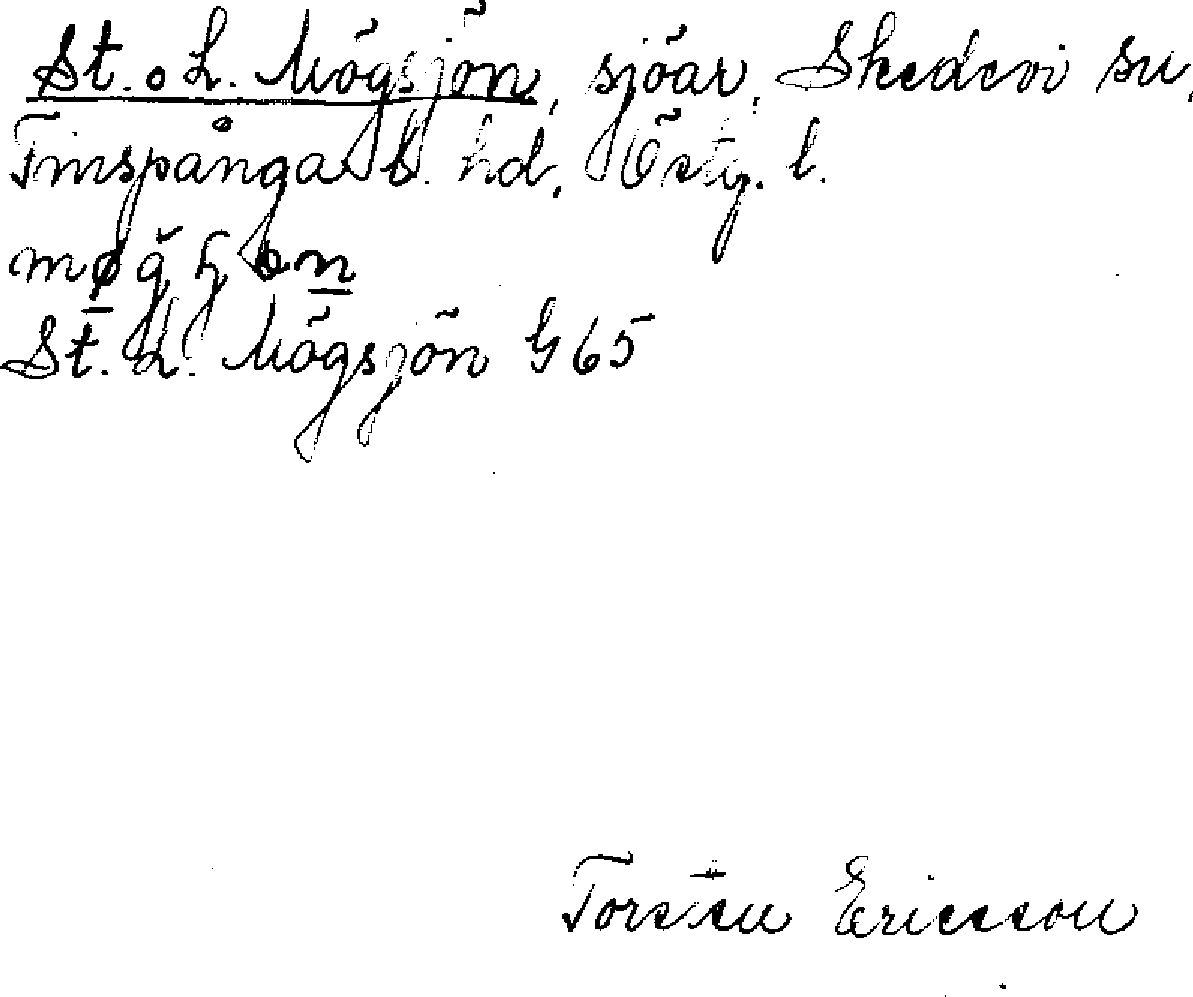 St. o L. Mögsjön, sjöar, Skedevi sn,
Finspånga l. hd, Östg. l.
St. L. Mögsjön G 65
Torsten Ericsson